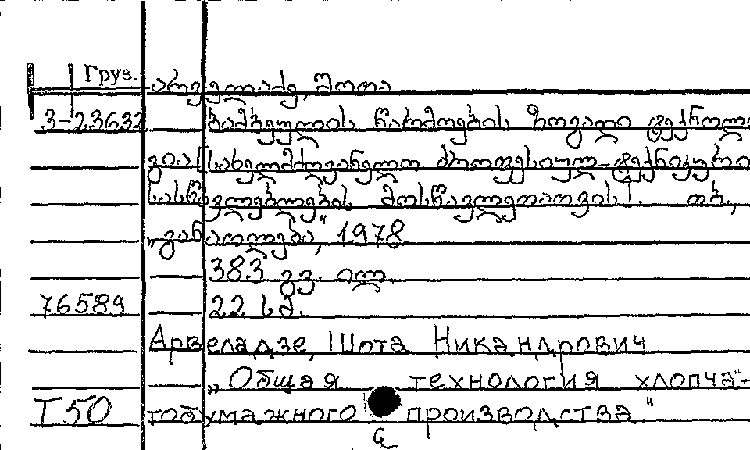 Груз.
არველაძე, შოთა
3-23632 ბამბეულის წარმოების ზოგადი ტექნოლო
გია [სახელმძღვანელო პროფესიულ-ტექნიკური
სასწავლებლების მოსწავლეთათვის]. თბ.,
„განათლება“, 1978
383 გვ. ილ.
76589 22 სმ.
Арвеладзе, Шота Никандрович
„Общая технология хлопча-
Т50 тобумажного производства“